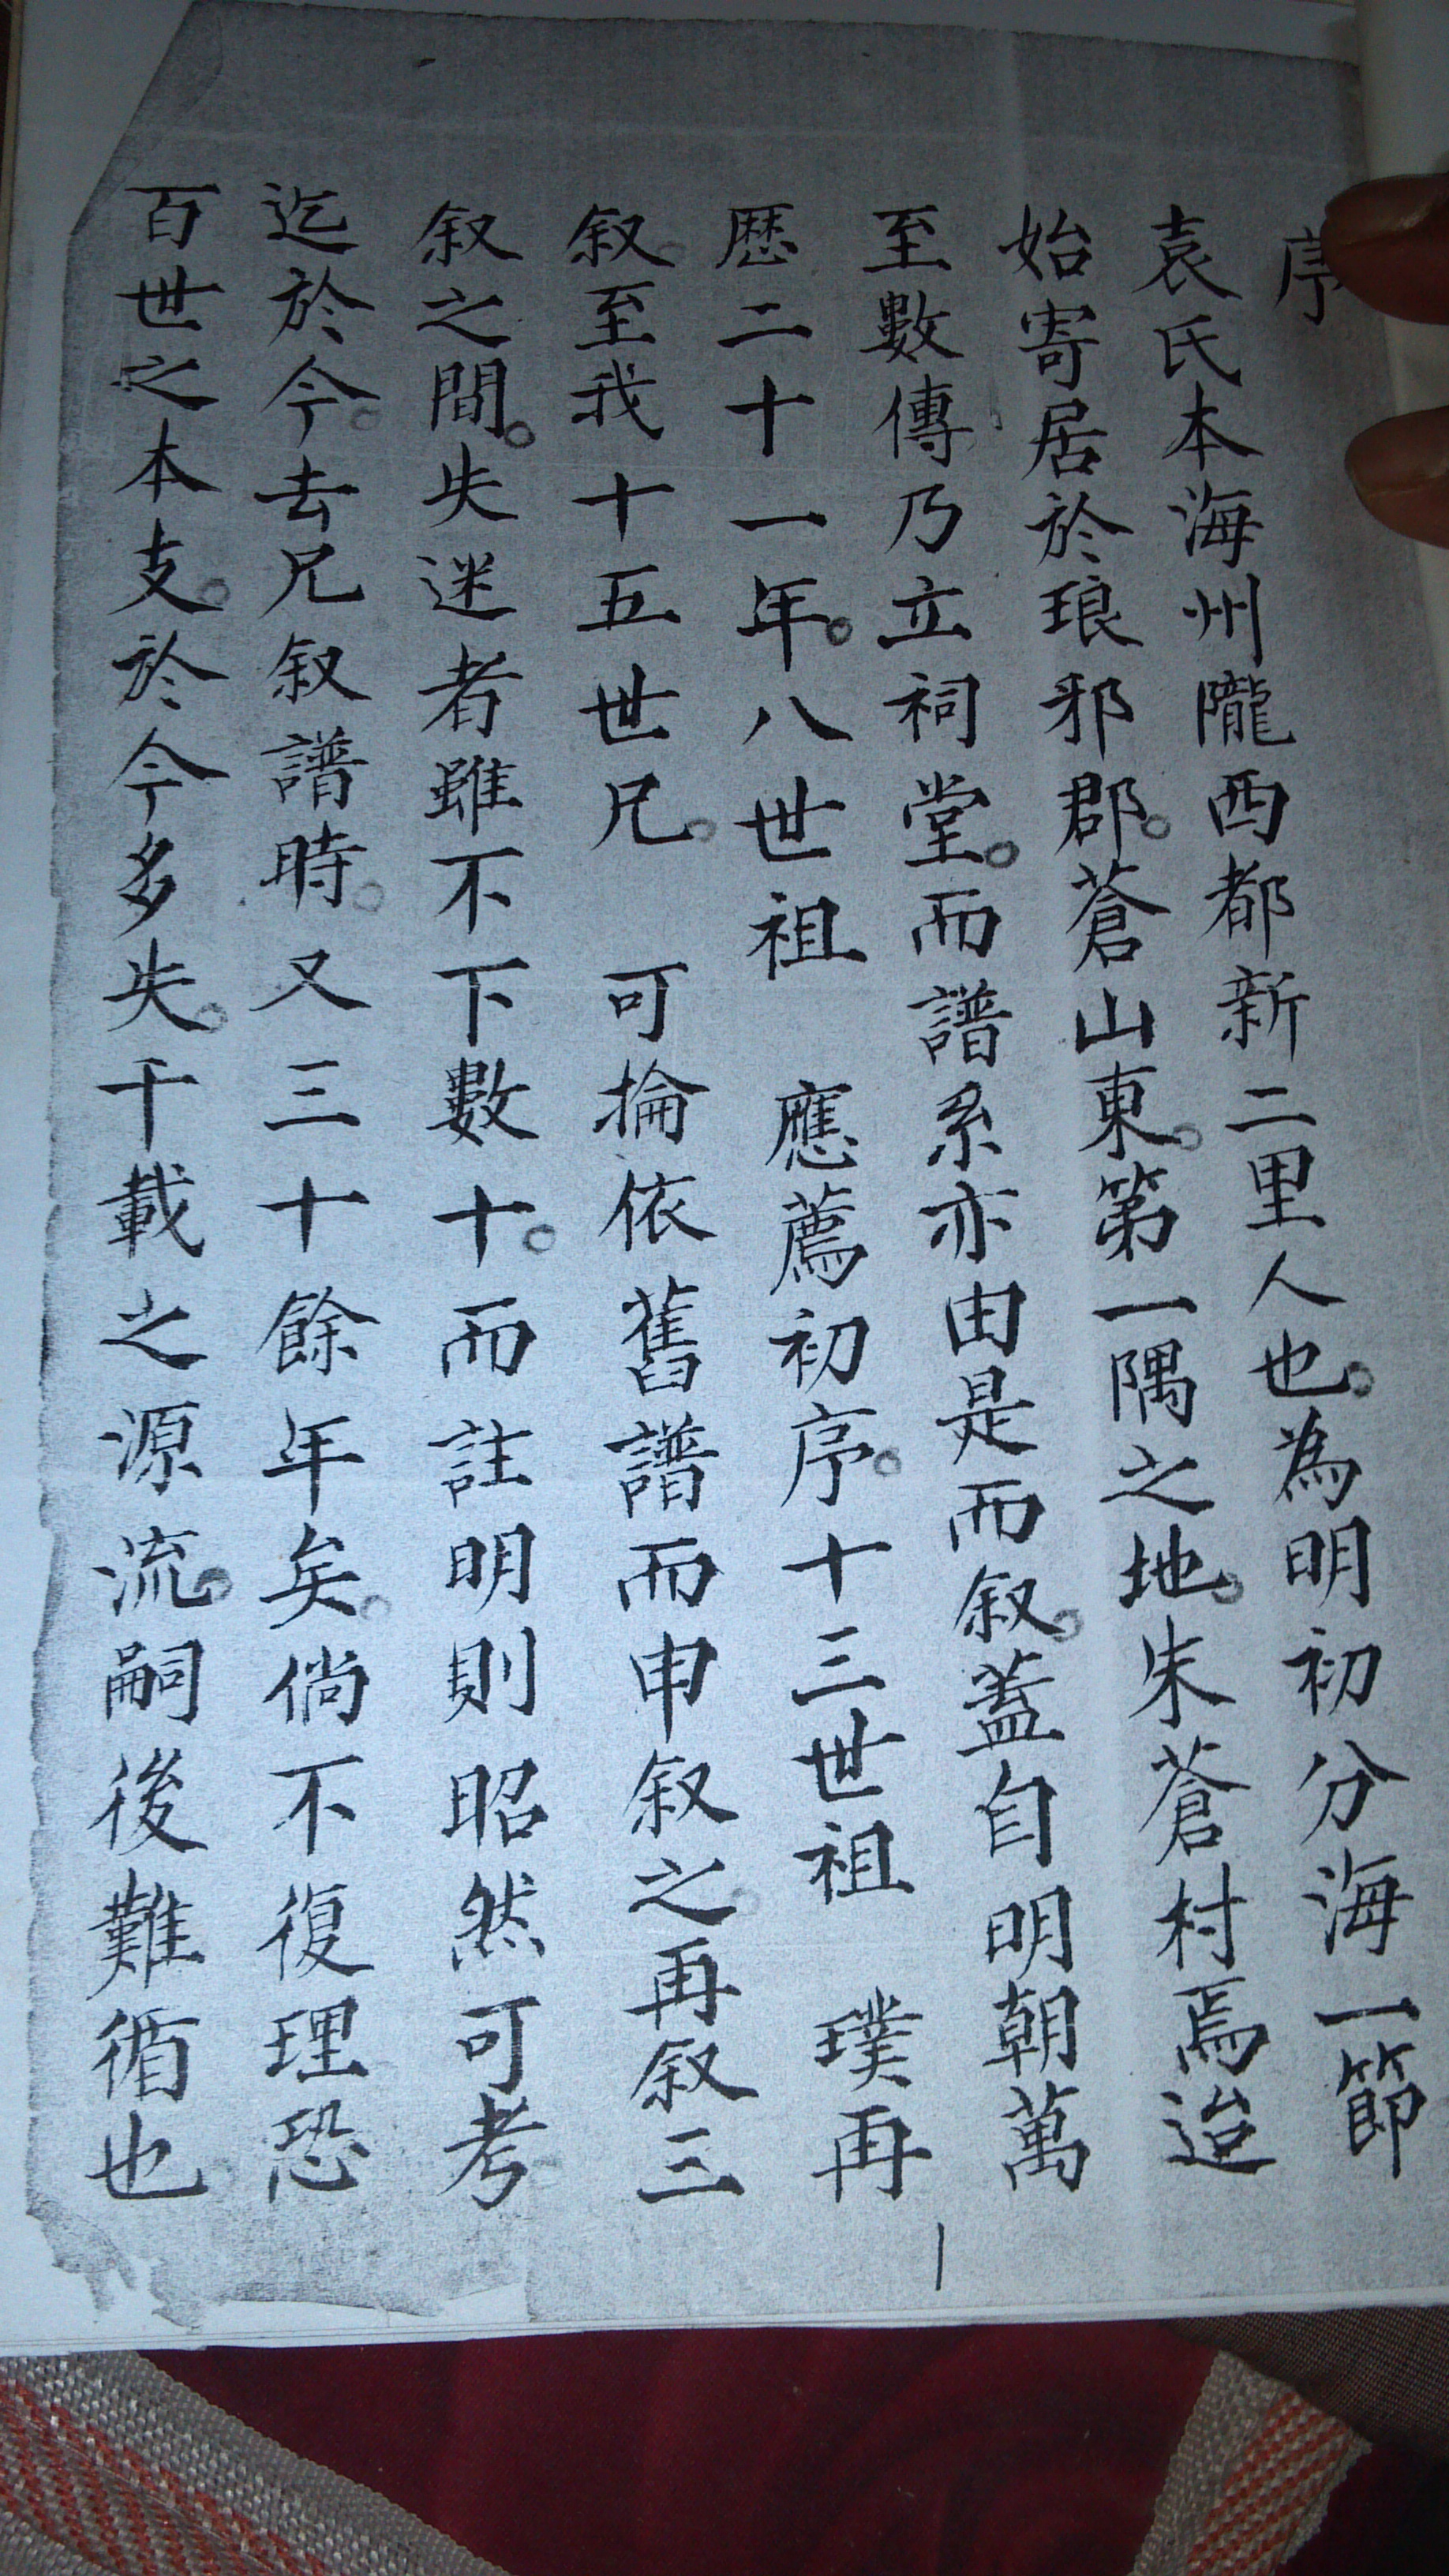 序
袁氏本海州隴西都新二里人也。為明初分海一節
始寄居於琅邪郡。蒼山東。第一隅之地。朱蒼村焉迨
至數傳乃立祠堂。而譜系亦由是而叙。蓋自明朝萬
歷二十一年。八世祖 應薦初序。十三世祖 璞再
叙至我十五世兄。 可掄依舊譜而申叙之。再叙三
叙之間。失迷者雖不下數十。而註明則昭然可考
迄於今。去兄叙譜時。又三十餘年矣。倘不復理恐
百世之本支。於今多失。千載之源流。嗣後難循也。